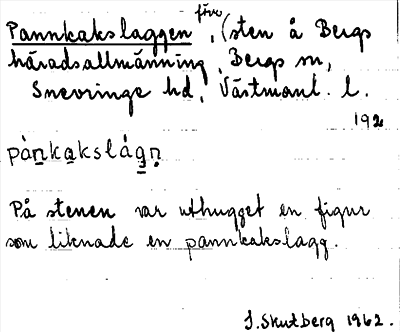 Pannkakslaggen förr, (sten å Bergs
häradsallmänning, Bergs sn,
Snevringe hd, Västmanl. l.
192
pànkakslágn
På stenen var uthugget en figur
som liknade en pannkakslagg.
J. Skutberg 1962.